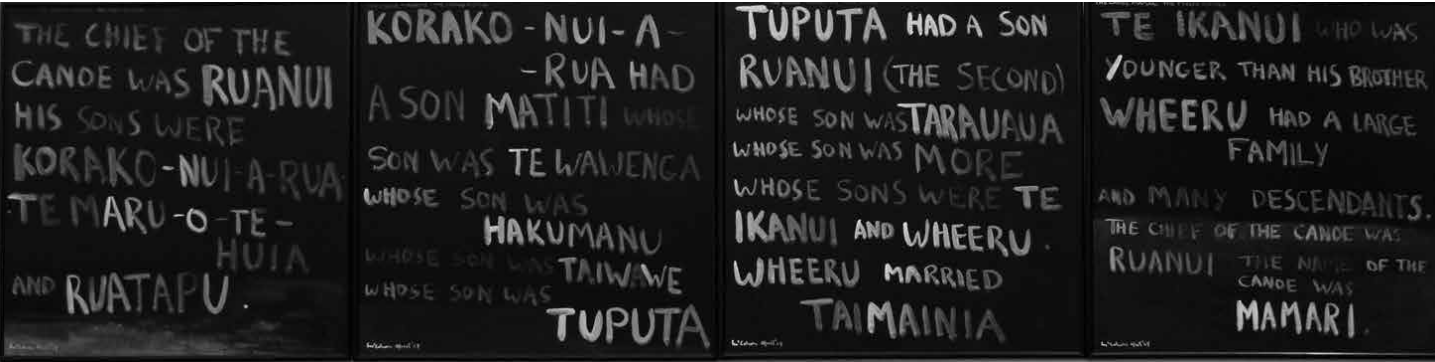 THE CHIEF OF THE
CANOE WAS RUANUI
HIS SONS WERE
KORAKO-NUI-A-RUA
TE MARU-O-TE-
HUIA
AND RUATAPU.
KORAKO-NUI-A-
-RUA HAD
A SON MATITI WHOSE
SON WAS TE WAWENGA
WHOSE SON WAS
HAKUMANU
WHOSE SON WAS TAIWAWE
WHOSE SON WAS
TUPUTA
TUPUTA HAD A SON
RUANUI (THE SECOND)
WHOSE SON WAS TARAUAUA
WHOSE SON WAS MORE
WHOSE SONS WERE TE
IKANUI AND WHEERU.
WHEERU MARRIED
TAIMAINIA
TE IKANUI WHO WAS
YOUNGER THAN HIS BROTHER
WHEERU HAD A LARGE
FAMILY
AND MANY DESCENDANTS.
THE CHIEF OF THE CANOE WAS
RUANUI THE NAME OF THE
CANOE WAS
MAMARI.